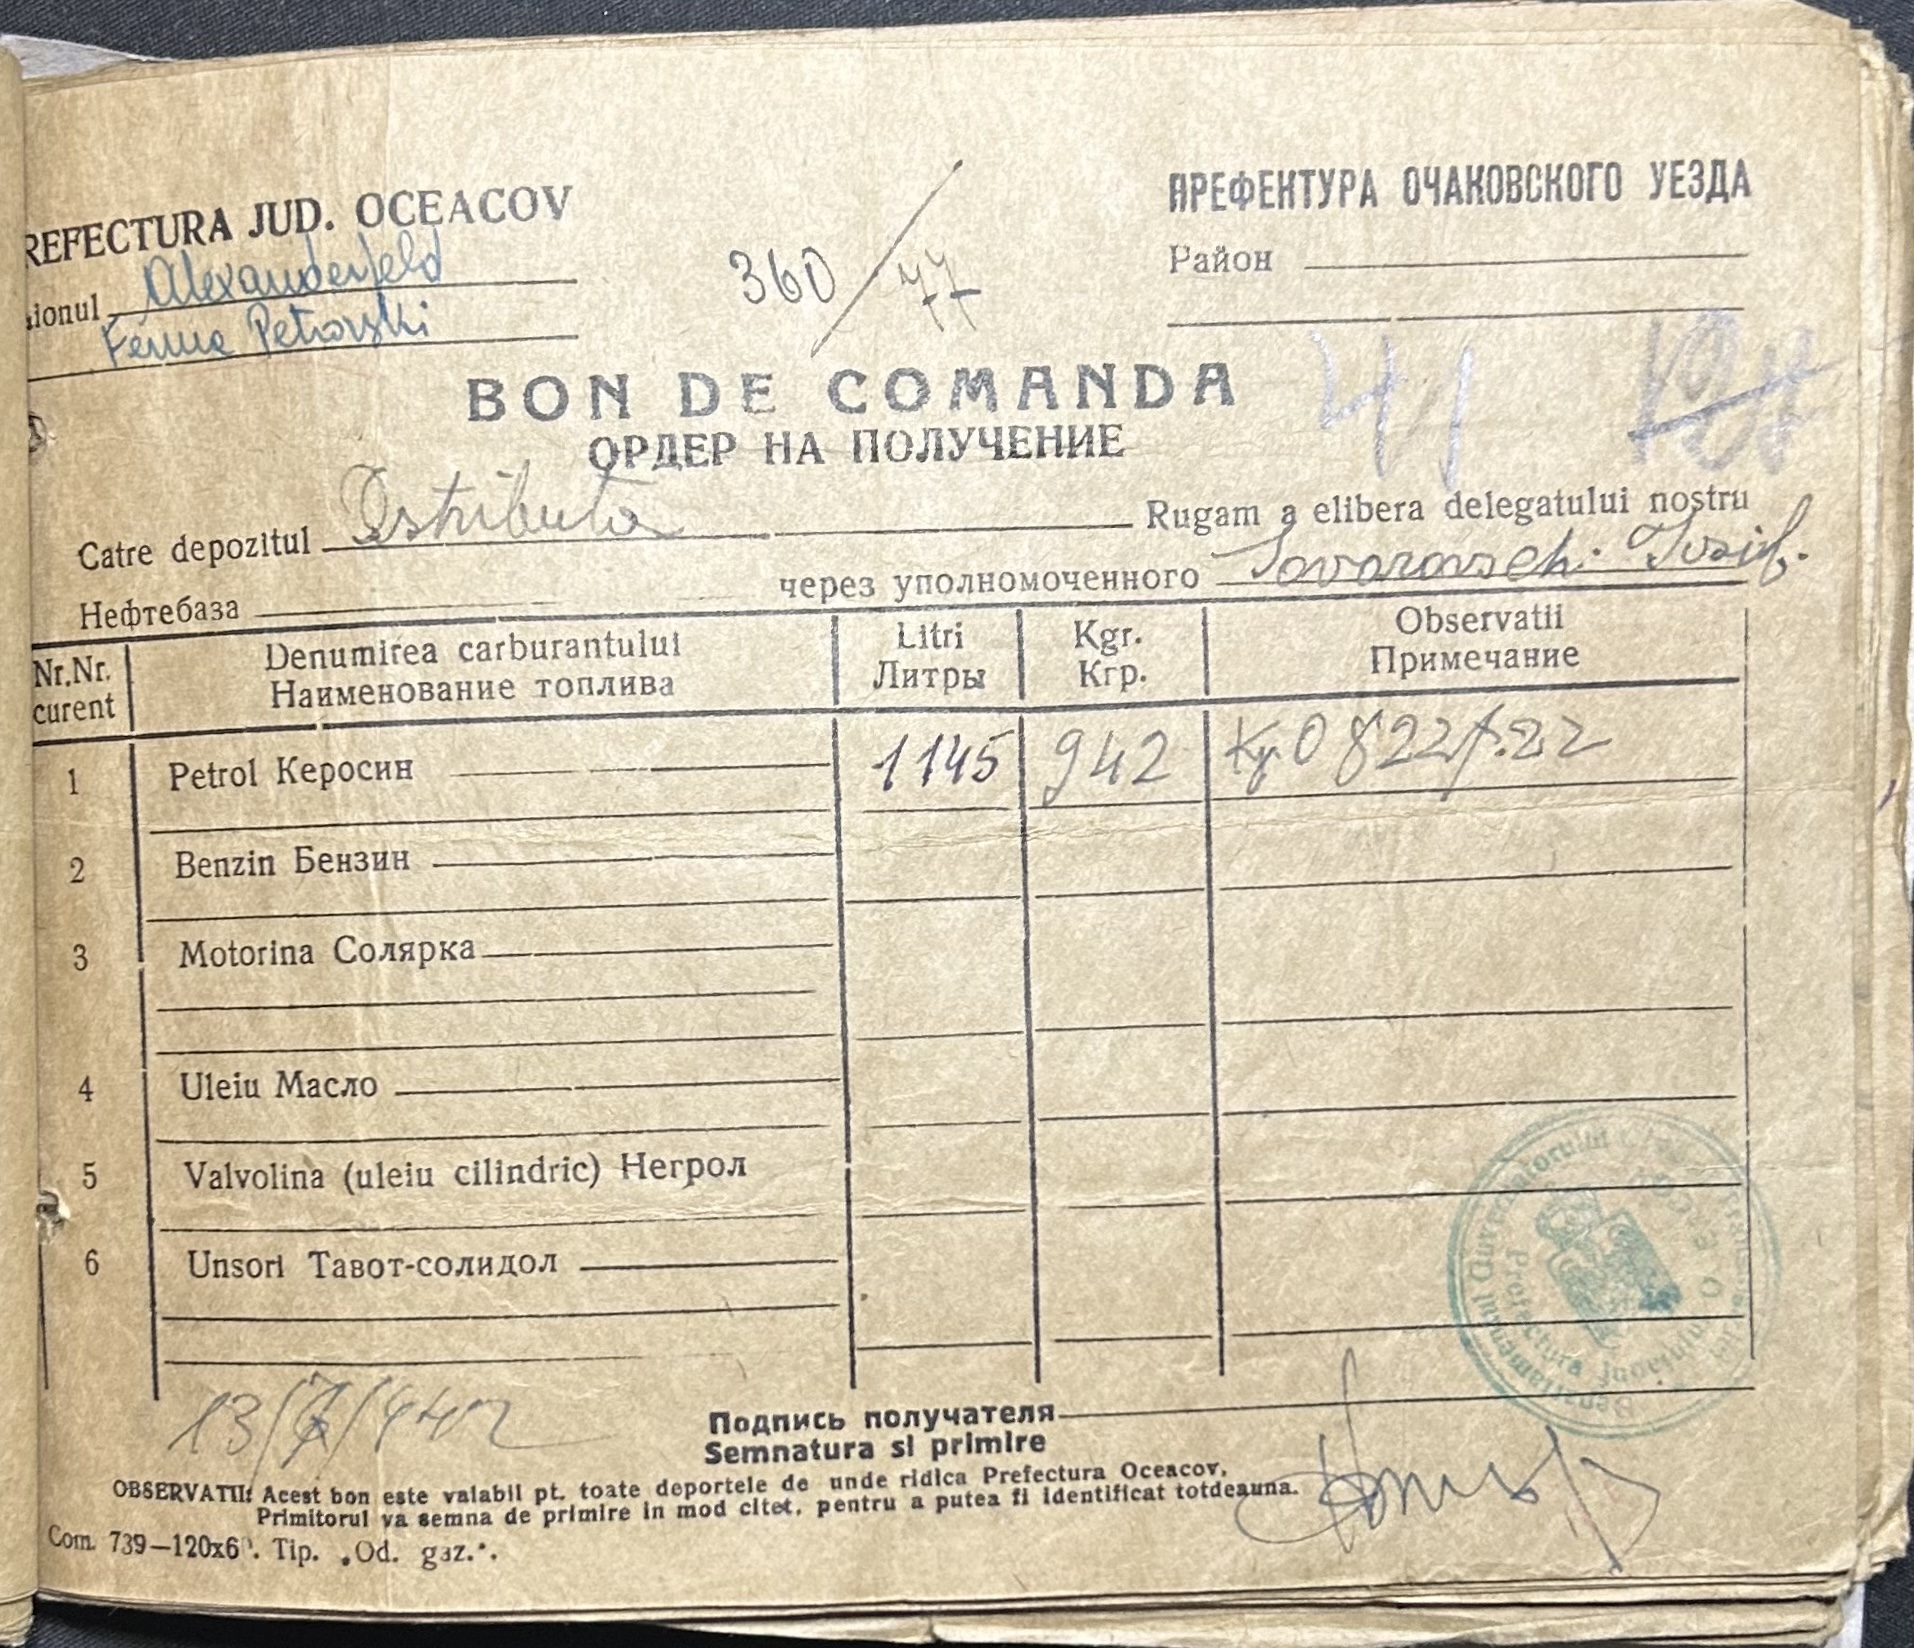 REFECTURA JUD. OCEACOV
ПРЕФЕНТУРА ОЧАКОВСКОГО УЕЗДА
ionul Alexanderfeld
Ferma Petrovski
360/77
Район
BON DE COMANDA
41
ОРДЕР НА ПОЛУЧЕНИЕ
Catre depozitul Distributia Rugam a elibera delegatului nostru
Нефтебаза через уполномоченного Iosif.
Nr.Nr. curent
Denumirea carburantului
Наименование топлива
Litri
Литры
Kgr.
Кгр.
Observatii
Примечание
1 Petrol Керосин 1145 942 0822
2 Benzin Бензин
3 Motorina Солярка
4 Uleiu Масло
5 Valvolina (uleiu cilindric) Негрол
6 Unsori Тавот-солидол
Departamentul Guvernatorului Transnistria
Prefectura Judetului Oceacov
13/7/942
Подпись получателя
Semnatura si primire
OBSERVATII: Acest bon este valabil pt. toate deportele de unde ridica Prefectura Oceacov.
Primitorul va semna de primire in mod citet, pentru a putea fi identificat totdeauna.
Com. 739—120x6 . Tip. „Od. gaz.".